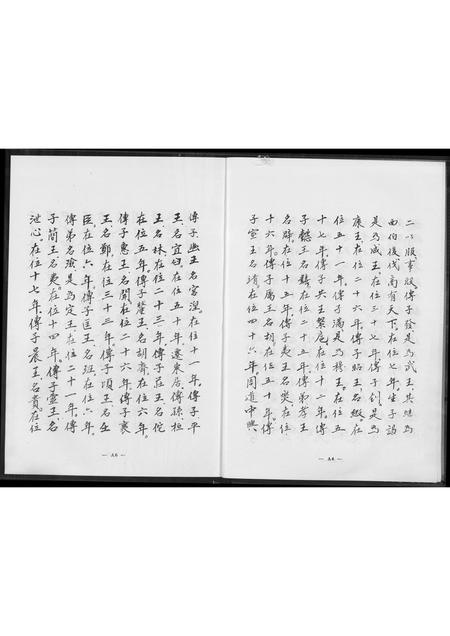 二以服事殷傳子發是為武王其継為
西伯後伐商有天下在位七年生子誦
是為成王在位三十七年傳子釗是為
康王在位二十六年傳子昭王名瑕在
位五十一年傳子滿是為穆王在位五
十七年傳子共王繄扈在位十二年傳
子懿王名囏在位二十五年傳弟孝王
名辟在位十五年傳子夷王名燮在位
十六年傳子厲王名胡在位五十年傳
子宣王名靖在位四十六年周道中興
傳子幽王名宮湼在位十一年傳子平
王名宜臼在位五十年遷東居傳孫桓
王名林在位二十三年傳子莊王名佗
在位五年傳子釐王名胡齊在位六年
傳子惠王名閬在位二十六年傳子襄
王名鄭在位三十三年傳子頃王名壬
臣在位六年傳子匡王名班在位六年
傳弟名瑜是為定王在位二十一年傳
子簡王名夷在位十四年傳子靈王名
泄心在位十七年傳子景王名貴在位